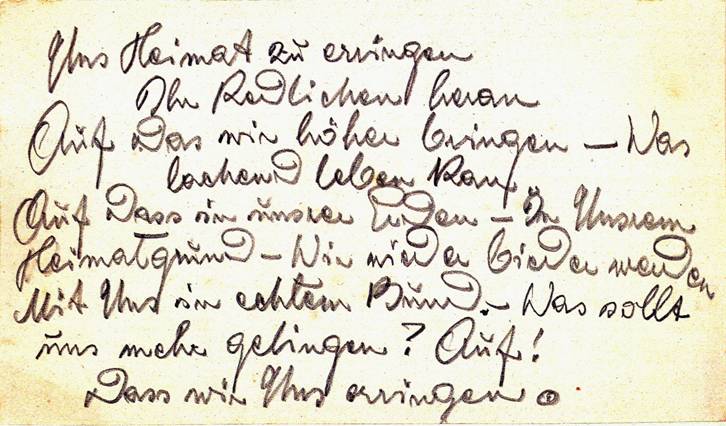 Uns Heimat zu erringen
Ihr Redlichen heran
Auf das wir höher bringen – Was
lachend leben kan,
Auf Dass in unsrer Erden – In Unsrem
Heimatgrund – Wir wieder bieder werden
Mit Uns in echtem Bund. – Was sollt
uns mehr gelingen? Auf!
Dass wir Uns erringen.